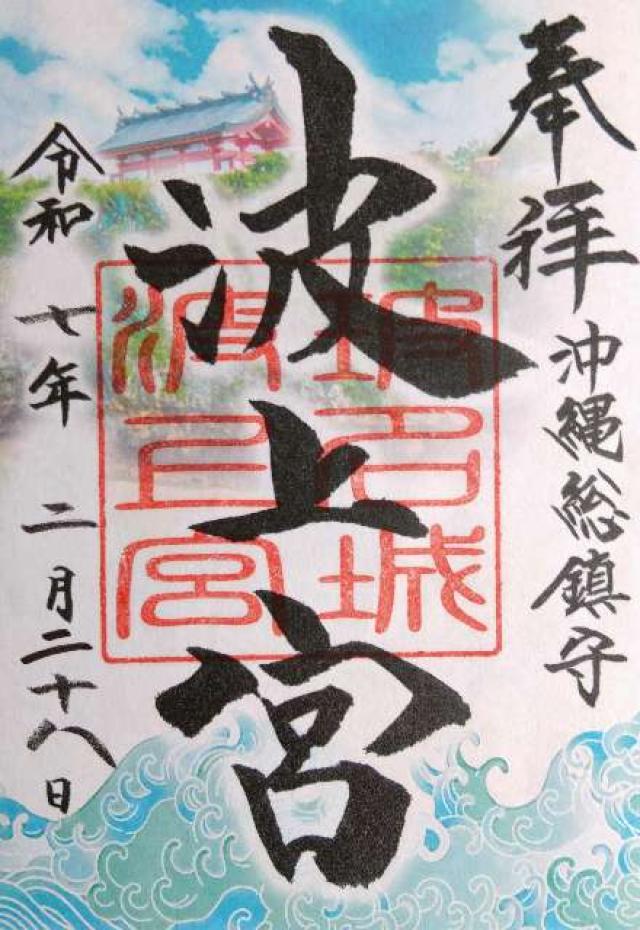 奉拝
沖縄総鎮守
波上宮
坡名城
波上宮
令和 七年 二月二十八日